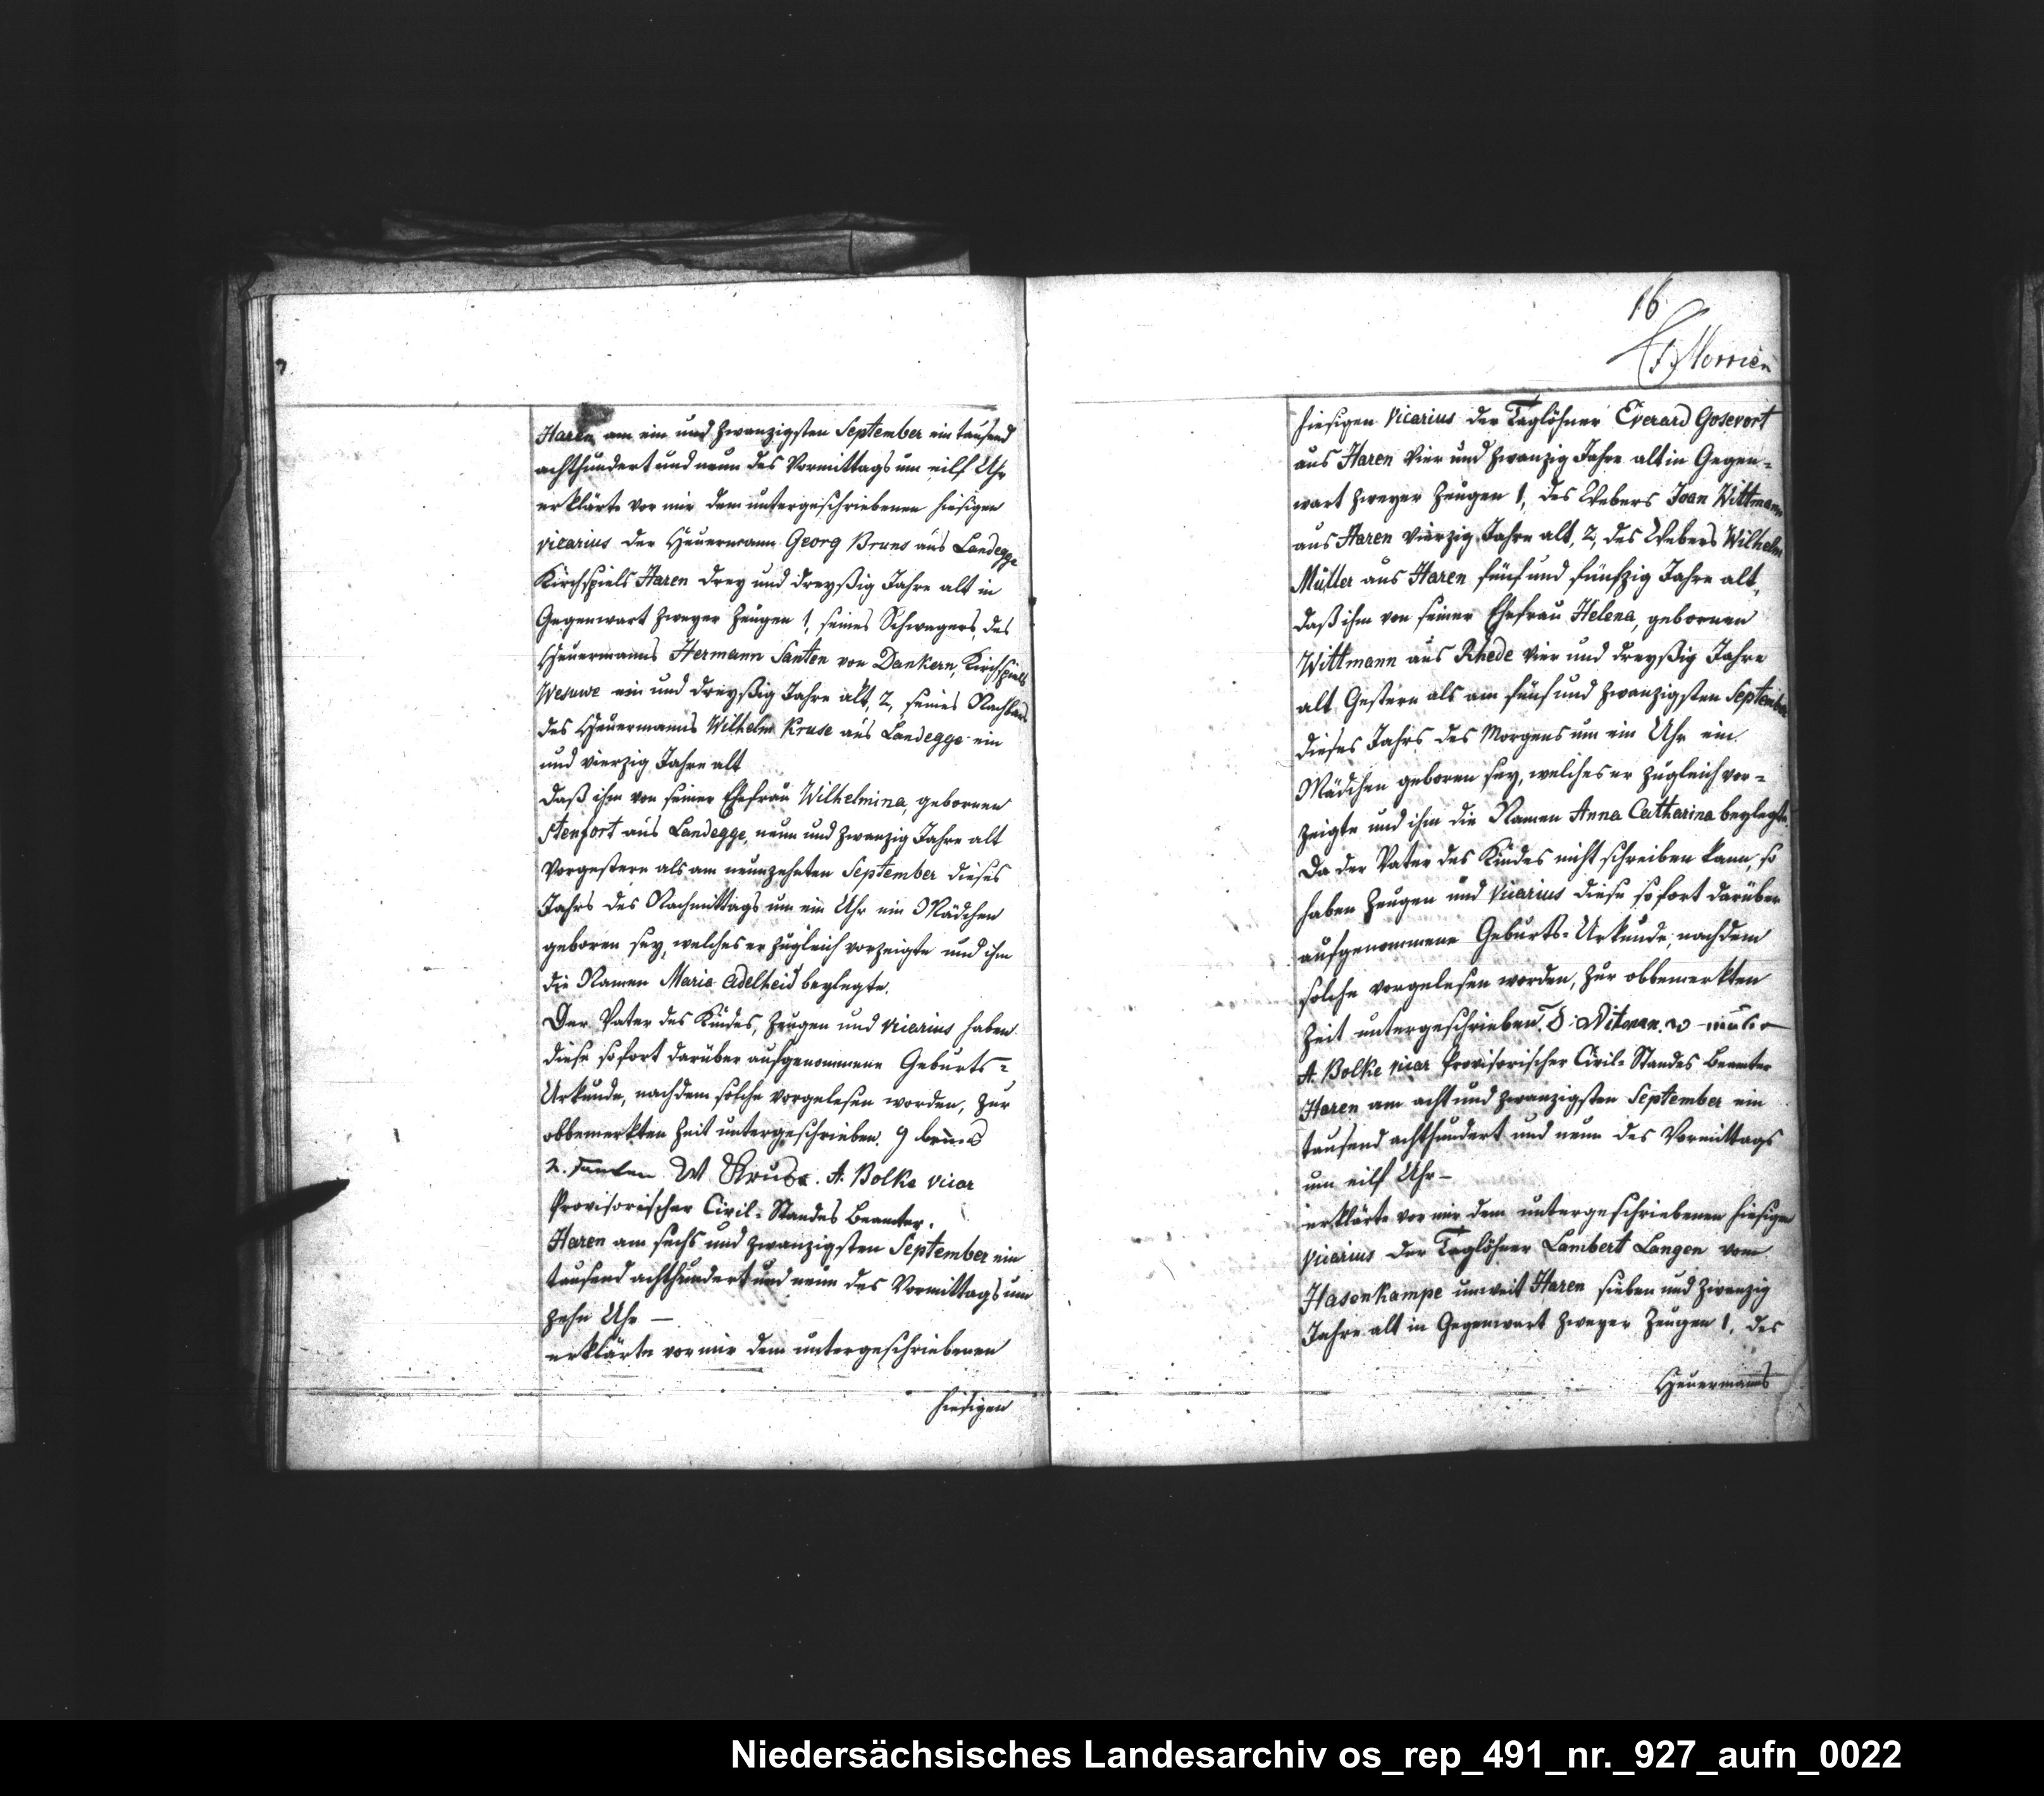 Haren am ein und zwanzigsten September ein tausend
achthundert und neun des Vormittags um eilf Uhr
erklärte vor mir dem untergeschriebenen hiesigen
vicarius der Heuermann Georg Bruns aus Landegge
Kirchspiels Haren drey und dreyßig Jahre alt in
Gegenwart zweyer Zeugen 1, seines Schwagers, des
Heuermanns Hermann Santen von Dankern, Kirchspiels
Wesuwe ein und dreyßig Jahre alt, 2, seines Nachbars
des Heuermanns Wilhelm Kruse aus Landegge ein
und vierzig Jahre alt
daß ihm von seiner Ehefrau Wilhelmina, gebornen
Stenfort aus Landegge, neun und zwanzig Jahre alt
Vorgestern als am neunzehnten September dieses
Jahrs des Nachmittags um ein Uhr ein Mädchen
geboren sey, welches er zugleich vorzeigte und ihm
die Namen Maria Adelheid beylegte.
Der Vater des Kindes, Zeugen und vicarius haben
diese sofort darüber aufgenommene Geburts=
Urkunde, nachdem solche vorgelesen worden, zur
obbemerkten Zeit untergeschrieben. G bruns
santen W Kruse. A. Bolke vicar
Provisorischer Civil-Standes Beamter.
Haren am sechs und zwanzigsten September ein
tausend achthundert und neun des Vormittags um
zehn Uhr —
erklärte vor mir dem untergeschriebenen
hiesigen
16
Morrien
hiesigen Vicarius der Taglöhner Everard Gosevort
aus Haren vier und zwanzig Jahre alt in Gegen=
wart zweyer Zeugen 1, des Webers Joan Wittmann
aus Haren vierzig Jahre alt, 2, des Webers Wilhelm
Müller aus Haren fünf und fünfzig Jahre alt,
daß ihm von seiner Ehefrau Helena, gebornen
Wittmann aus Rhede vier und dreyßig Jahre
alt Gestern als am fünf und zwanzigsten September
dieses Jahrs des Morgens um ein Uhr ein
Mädchen geboren sey, welches er zugleich vor=
zeigte und ihm die Namen Anna Catharina beylegte.
Da der Vater des Kindes nicht schreiben kann, so
haben Zeugen und Vicarius diese sofort darüber
aufgenommene Geburts-Urkunde, nachdem
solche vorgelesen worden, zur obbemerkten
Zeit untergeschrieben.
A. Bolke vicar Provisorischer Civil-Standes Beamter
Haren am acht und zwanzigsten September ein
tausend achthundert und neun des Vormittags
um eilf Uhr —
erklärte vor mir dem untergeschriebenen hiesigen
Vicarius der Taglöhner Lambert Langen vom
Hasenkampe unweit Haren sieben und zwanzig
Jahre alt in Gegenwart zweyer Zeugen 1, des
Heuermanns
Niedersächsisches Landesarchiv os_rep_491_nr._927_aufn_0022